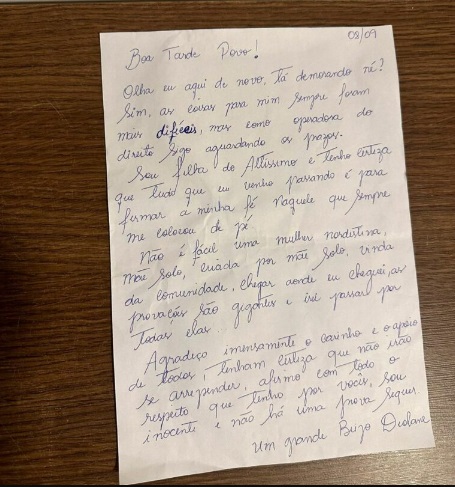 08/09
Boa Tarde Povo!
Olha eu aqui de novo, tá demorando né?
Sim, as coisas para mim sempre foram
mais difíceis, mas como operadora do
direito sigo aguardando os prazos.
Sou filha do Altíssimo e tenho certeza
que tudo que eu venho passando é para
firmar a minha fé naquele que sempre
me colocou de pé
Não é fácil uma mulher nordestina,
mãe solo, criada por mãe solo, vinda
da comunidade, chegar aonde eu cheguei, as
provações são gigantes e irei passar por
todas elas...
Agradeço imensamente o carinho e o apoio
de todos, tenham certeza que não irão
se arrepender, afirmo com todo o
respeito que tenho por vocês, sou
inocente e não há uma prova sequer.
Um grande Beijo Deolane